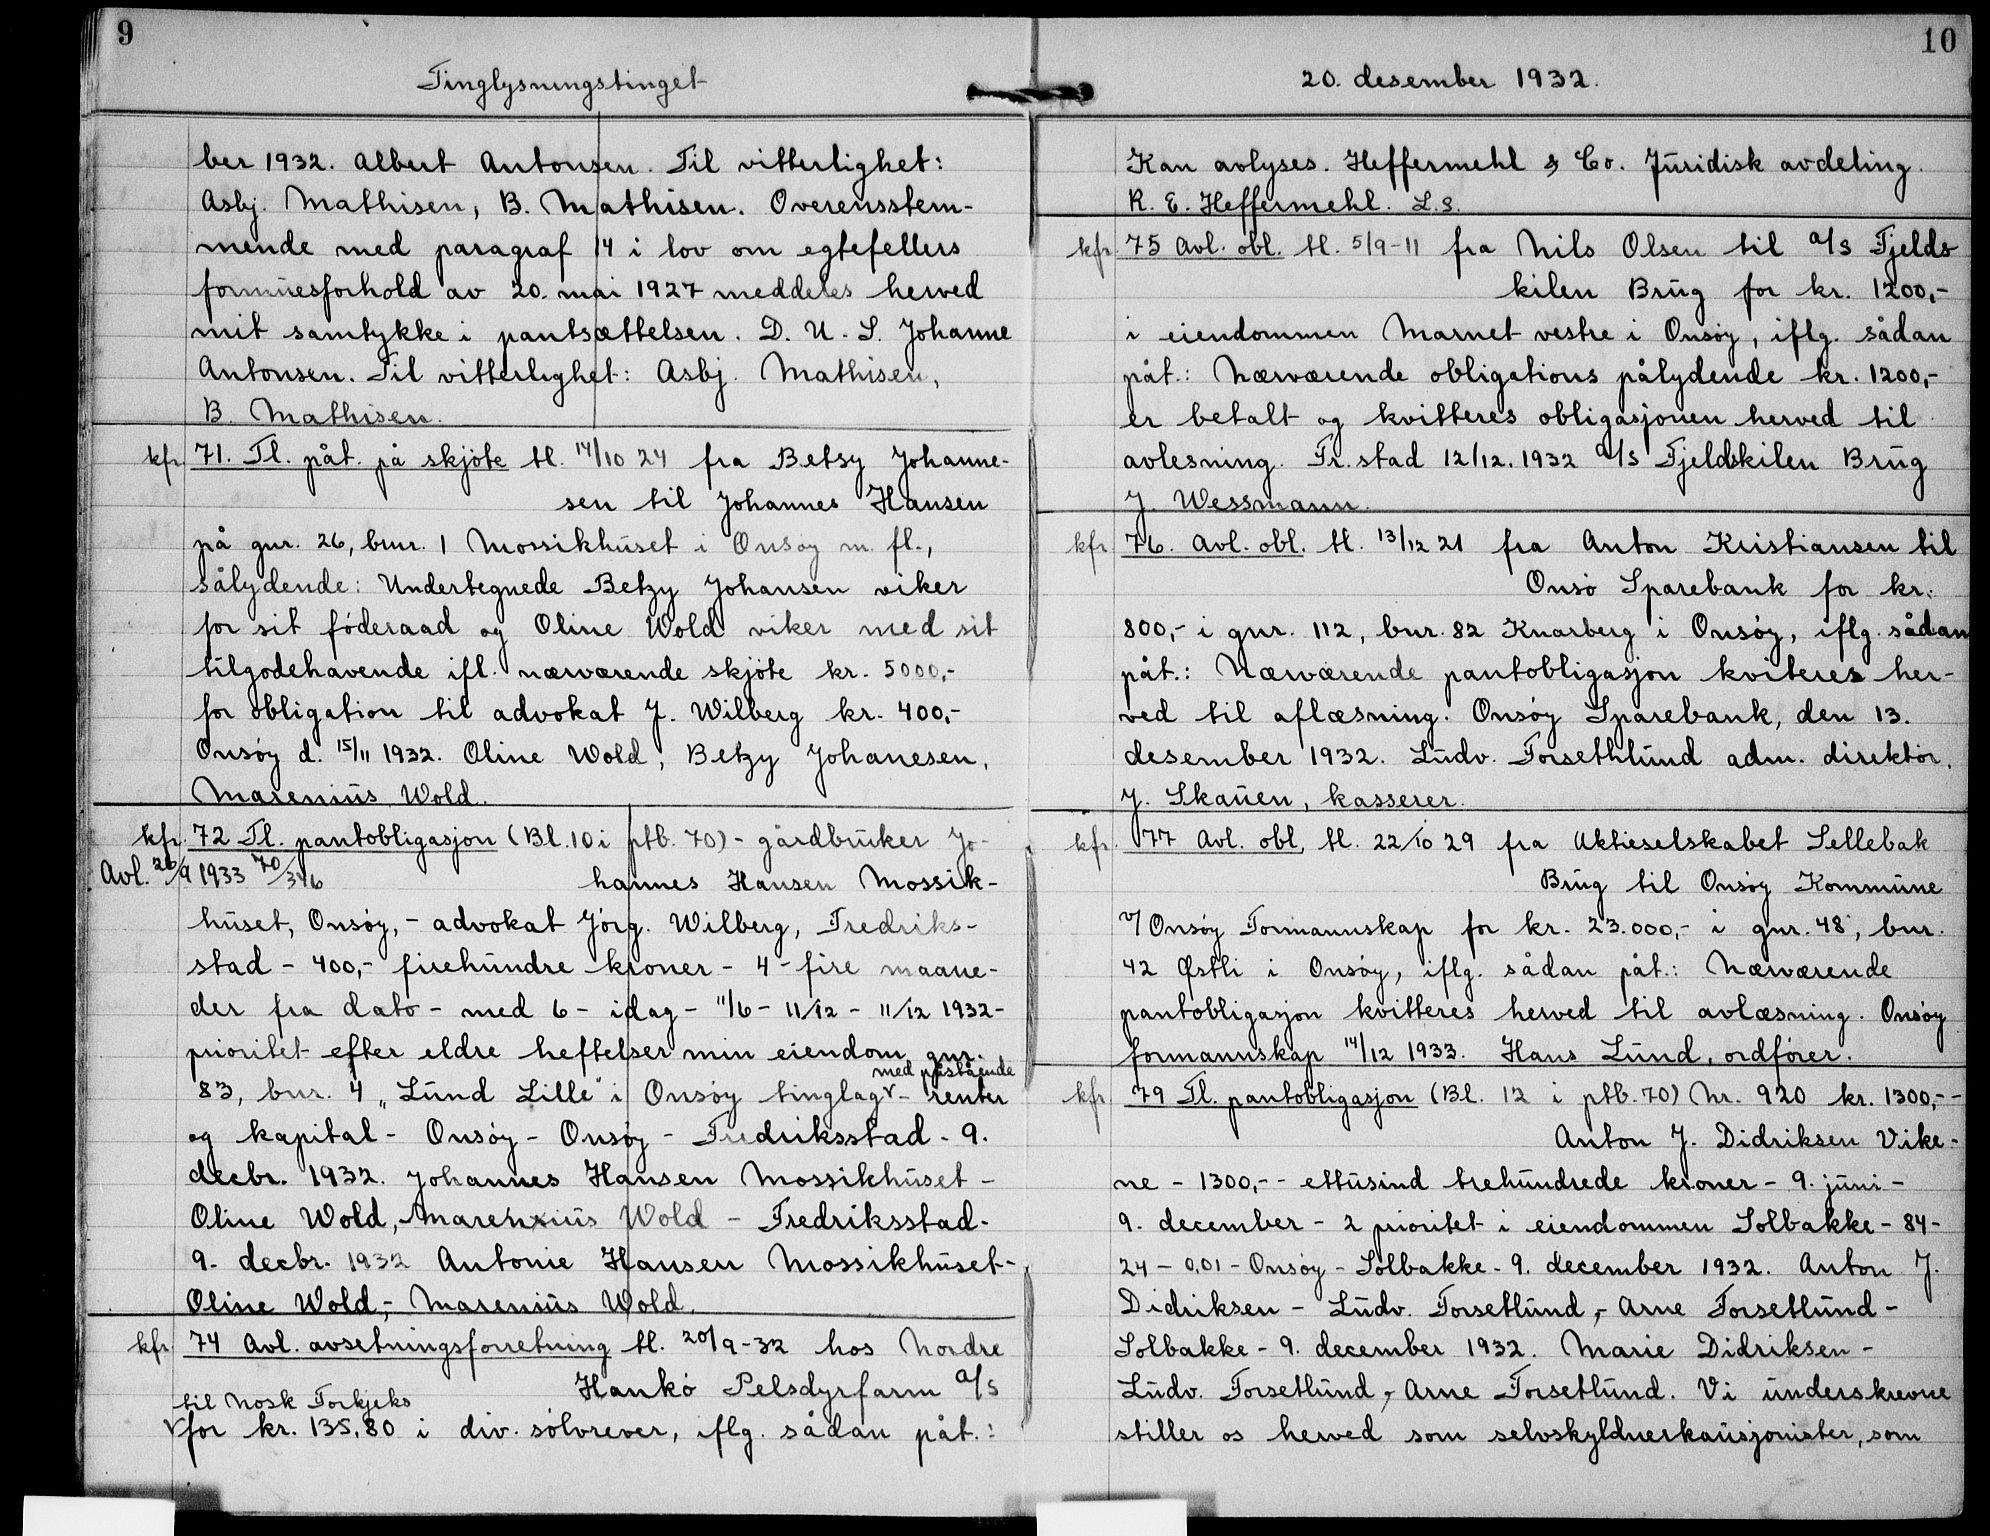 9
Tinglysningstinget
ber 1932. Albert Antonsen. Til vitterlighet:
Asbj. Mathisen, B. Mathisen. Overensstem-
mende med paragraf 14 i lov om egtefellers
formuesforhold av 20. mai 1927 meddeles herved
mit samtykke i pantsættelsen. D. U. S. Johanne
Antonsen. Til vitterlighet: Asbj. Mathisen,
B. Mathisen.
kfr. 71. Tl. påt. på skjöte tl. 14/10 24 fra Betsy Johanne-
sen til Johannes Hansen
på gnr. 26, bnr. 1 Mossikhuset i Onsøy m. fl.,
sålydende: Undertegnede Betzy Johansen viker
for sit föderaad og Oline Wold viker med sit
tilgodehavende ifl. nærværende skjöte kr. 5000,-
for obligation til advokat J. Wilberg kr. 400,-
Onsøy d. 15/11 1932. Oline Wold, Betzy Johanesen,
Marenius Wold.
kfr. 72 Tl. pantobligasjon (Bl. 10 i ptb. 70) - gårdbruker Jo-
Avl. 26/9 1933 70/346 hannes Hansen Mossik-
huset, Onsøy, - advokat Jörg. Wilberg, Fredriks-
stad - 400,- firehundre kroner - 4 - fire maane-
der fra dato - med 6 - idag - 11/6 - 11/12 - 11/12 1932 -
prioritet efter eldre heftelser min eiendom gnr.
med påstående
83, bnr. 4 „Lund Lille" i Onsøy tinglag v - renter
og kapital - Onsøy - Onsøy - Fredriksstad - 9.
decbr. 1932. Johannes Hansen Mossikhuset -
Oline Wold, - Marenxius Wold - Fredriksstad -
9. decbr. 1932 Antonie Hansen Mossikhuset -
Oline Wold, - Marenius Wold.
kfr. 74 Avl. avsetningsforretning tl. 20/9-32 hos Nordre
Hankö Pelsdyrfarm A/S
til Norsk Torkjeks
v for kr. 135,80 i div. sölvrever, iflg. sådan påt.:
10
20. desember 1932.
Kan avlyses. Heffermehl & Co. Juridisk avdeling.
R. E. Heffermehl. L.S.
kfr. 75 Avl. obl. tl. 5/9-11 fra Nils Olsen til A/S Fjelds
kilen Brug for kr. 1200,-
i eiendommen Marnet vestre i Onsøy, iflg. sådan
påt.: Nærværende obligations pålydende kr. 1200,-
er betalt og kvitteres obligasjonen herved til
avlesning. Fr.stad 12/12. 1932 A/S Fjeldskilen Brug
J. Wessmann.
kfr. 76. Avl. obl. tl. 13/12 21 fra Anton Kristiansen til
Onsö Sparebank for kr.
800,- i gnr. 112, bnr. 82 Knarberg i Onsøy, iflg. sådan
påt.: Nærværende pantobligasjon kviteres her-
ved til aflæsning. Onsøy Sparebank, den 13.
desember 1932. Ludv. Forsethlund adm. direktör.
J. Skauen, kasserer.
kfr. 77 Avl. obl. tl. 22/10 29 fra Aktieselskabet Sellebak
Brug til Onsøy Kommune
v/ Onsøy Formannskap for kr. 23.000,- i gnr. 48, bnr.
42 Østli i Onsøy, iflg. sådan påt.: Nærværende
pantobligasjon kvitteres herved til avlæsning. Onsøy
formannskap 14/12 1933. Hans Lund, ordförer.
kfr. 79 Tl. pantobligasjon (Bl. 12 i ptb. 70) Nr. 920 kr. 1300,--
Anton J. Didriksen Vike-
ne - 1300,-- ettusind trehundrede kroner - 9. juni -
9. december - 2 prioritet i eiendommen Solbakke - 84 -
24 - 0,01 - Onsøy - Solbakke - 9. december 1932. Anton J.
Didriksen - Ludv. Forsetlund, - Arne Forsetlund -
Solbakke - 9. december 1932. Marie Didriksen -
Ludv. Forsetlund, - Arne Forsetlund. Vi underskrevne
stiller os herved som selvskyldnerkausjonister, som